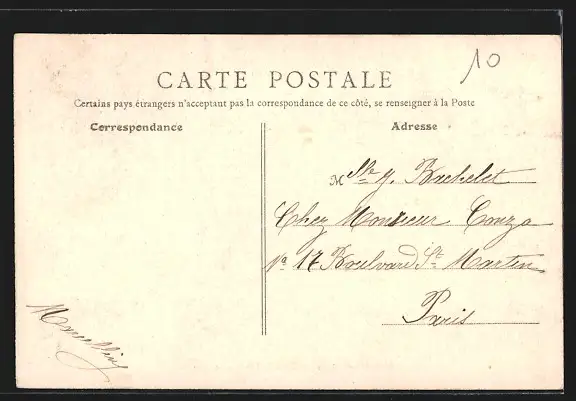 10
CARTE POSTALE
Certains pays étrangers n'acceptant pas la correspondance de ce côté, se renseigner à la Poste
Correspondance
Adresse
Mlle G. Bachelet
Chez Monsieur Couza
No 17 Boulvard St Martin
Paris
Marcelline